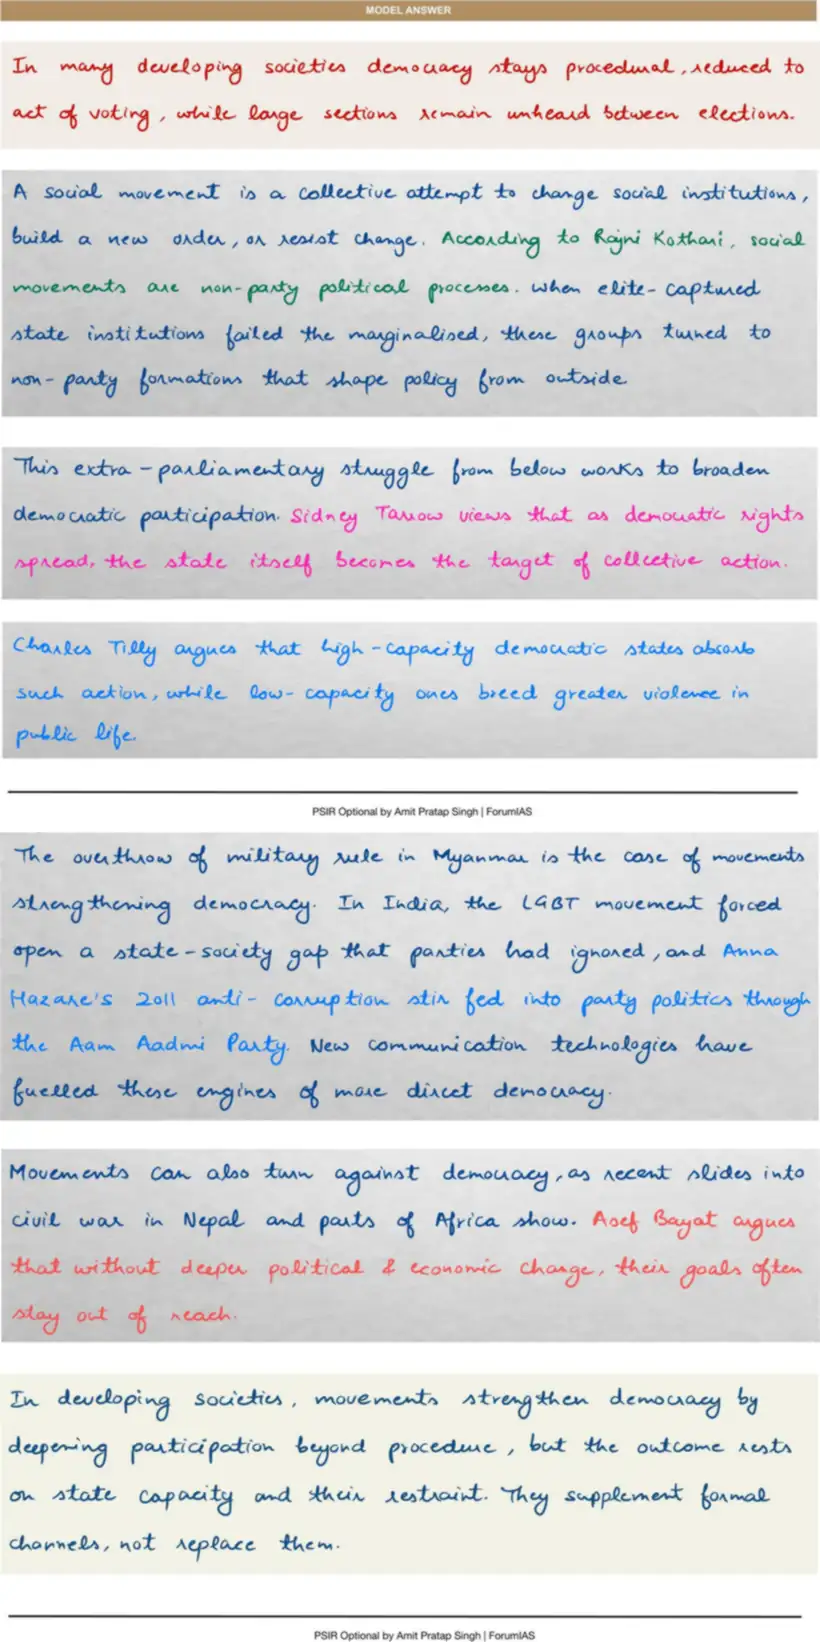 MODEL ANSWER
In many developing societies democracy stays procedural, reduced to
act of voting, while large sections remain unheard between elections.
A social movement is a collective attempt to change social institutions,
build a new order, or resist change. According to Rajni Kothari, social
movements are non-party political processes. When elite-captured
state institutions failed the marginalised, these groups turned to
non-party formations that shape policy from outside.
This extra-parliamentary struggle from below works to broaden
democratic participation. Sidney Tarrow views that as democratic rights
spread, the state itself becomes the target of collective action.
Charles Tilly argues that high-capacity democratic states absorb
such action, while low-capacity ones breed greater violence in
public life.
PSIR Optional by Amit Pratap Singh | ForumIAS
The overthrow of military rule in Myanmar is the case of movements
strengthening democracy. In India, the LGBT movement forced
open a state-society gap that parties had ignored, and Anna
Hazare's 2011 anti-corruption stir fed into party politics through
the Aam Aadmi Party. New communication technologies have
fuelled these engines of more direct democracy.
Movements can also turn against democracy, as recent slides into
civil war in Nepal and parts of Africa show. Asef Bayat argues
that without deeper political & economic change, their goals often
stay out of reach.
In developing societies, movements strengthen democracy by
deepening participation beyond procedure, but the outcome rests
on state capacity and their restraint. They supplement formal
channels, not replace them.
PSIR Optional by Amit Pratap Singh | ForumIAS